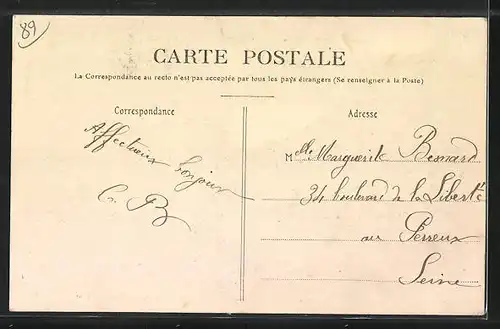 89
CARTE POSTALE
La Correspondance au recto n'est pas acceptée par tous les pays étrangers (Se renseigner à la Poste)
Correspondance
Affectueux bonjour
B
Adresse
Mlle Marguerite Besnard
34 boulevard de la Liberté
au Perreux
Seine